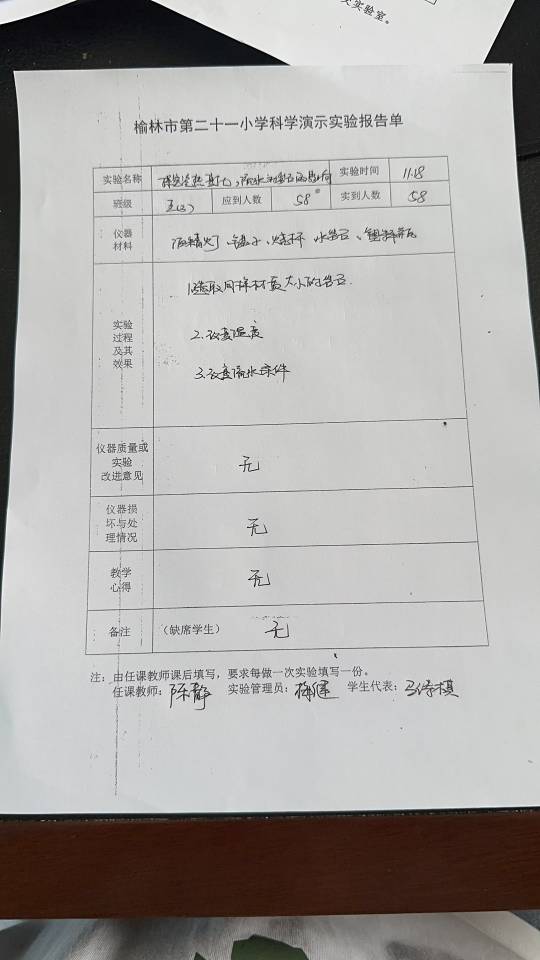 实验室。
榆林市第二十一小学科学演示实验报告单
实验名称 探究冷热变化,流水对岩石的影响 实验时间 11.18
班级 五(3) 应到人数 58 实到人数 58
仪器
材料
酒精灯、镊子、烧杯、水、岩石、塑料瓶
实验
过程
及其
效果
1.选取同样材质大小的岩石.
2.改变温度
3.改变流水条件
仪器质量或
实验
改进意见
无
仪器损
坏与处
理情况
无
教学
心得
无
备注 (缺席学生) 无
注:由任课教师课后填写,要求每做一次实验填写一份。
任课教师:陈静 实验管理员: 学生代表: